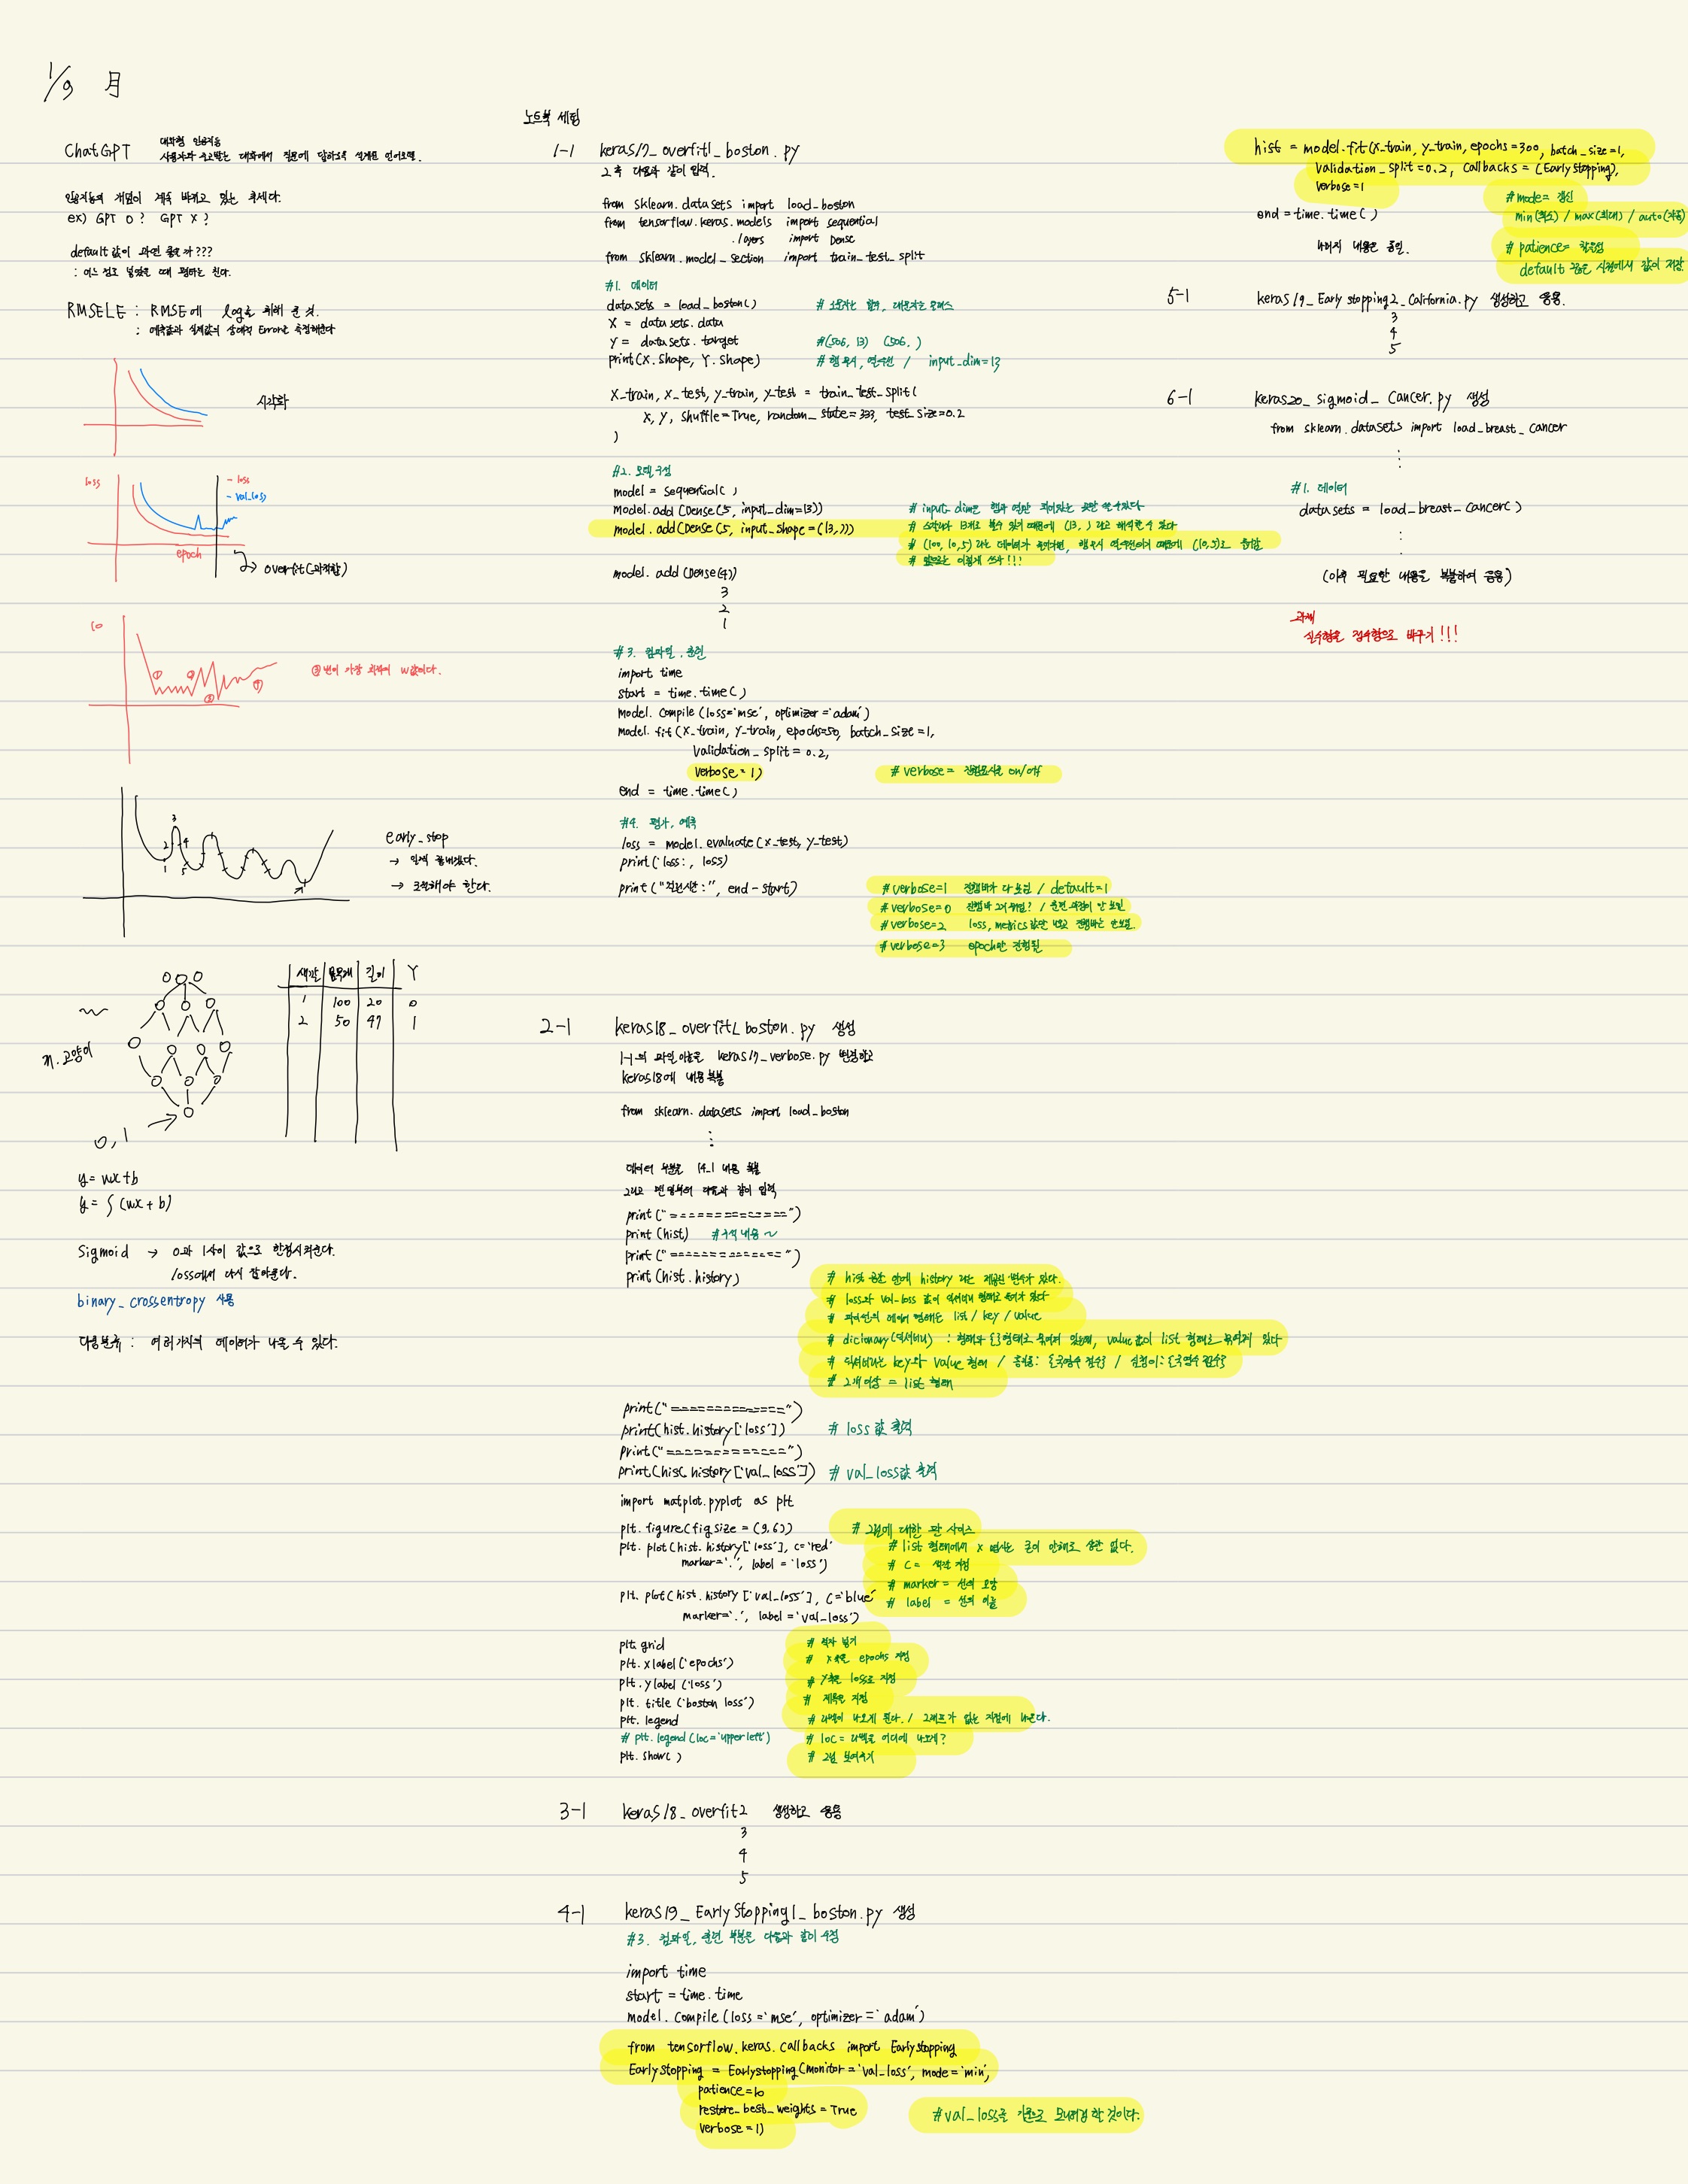 1/9 月
ChatGPT 대화형 인공지능
사용자와 주고받는 대화에서 질문에 답하도록 설계된 언어모델.
인공지능의 개념이 계속 바뀌고 있는 추세다.
ex) GPT O? GPT X?
default 값이 과연 좋을까???
: 어느 정도 넣었을 때 원하는 된다.
RMSELE : RMSE에 log를 취해 준 것.
: 예측값과 실제값의 상대적 Error를 측정해준다
시각화
loss
- loss
- val_loss
epoch
overfit(과적합)
lo
① ② ③ ④
③번이 가장 최적의 w값이다.
1 2 3 4 5
early_stop
→ 일찍 끝내겠다.
→ 조절해야 한다.
색깔 몸무게 길이 Y
1 100 20 0
2 50 47 1
개.고양이
0, 1
y = wx+b
y = ∫(wx+b)
Sigmoid → 0과 1사이 값으로 한정시켜준다.
loss에서 다시 잡아준다.
binary_crossentropy 사용
다중분류 : 여러가지의 데이터가 나올 수 있다.
노트북 세팅
1-1 keras17_overfit1_boston.py
그 후 다음과 같이 입력.
from sklearn.datasets import load_boston
from tensorflow.keras.models import sequential
.layers import Dense
from sklearn.model_section import train_test_split
#1. 데이터
datasets = load_boston() # 소문자는 함수, 대문자는 클래스
X = datasets.data
Y = datasets.target #(506, 13) (506, )
print(X.shape, Y.shape) # 행무시, 열우선 / input_dim=13
X_train, X_test, y_train, y_test = train_test_split(
X, Y, shuffle=True, random_state=333, test_size=0.2
)
#2. 모델구성
model = sequential( )
model.add(Dense(5, input_dim=13)) # input_dim은 행과 열만 되어있는 것만 쓸 수 있다
model.add(Dense(5, input_shape=(13,))) # 스칼라가 13개로 볼수 있기 때문에 (13, ) 라고 해석할 수 있다
# (100, 10, 5) 라는 데이터가 들어가면, 행무시 열우선이기 때문에 (10,5)로 들어감
# 앞으로는 이렇게 쓰자!!!
model.add(Dense(4))
3
2
1
#3. 컴파일, 훈련
import time
start = time.time( )
model.compile(loss='mse', optimizer='adam')
model.fit(x_train, Y_train, epochs=50, batch_size=1,
validation_split=0.2,
verbose=1) # verbose= 진행표시줄 on/off
end = time.time( )
#4. 평가, 예측
loss = model.evaluate(x_test, y_test)
print('loss:, loss)
print("걸린시간:", end-start) # verbose=1 진행바가 다 보임 / default=1
# verbose=0 / 훈련 과정이 안 보임
# verbose=2 loss, metrics 값만 나오고 진행바는 안보임.
# verbose=3 epoch만 진행됨
2-1 keras18_overfit1_boston.py 생성
1-1의 파일이름을 keras17_verbose.py 변경하고
keras18에 내용 복붙
from sklearn.datasets import load_boston
⋮
데이터 부분은 1-1 내용 복붙
그리고 맨 밑부터 다음과 같이 입력
print("=============")
print(hist) #주석 내용 ~
print("=============")
print(hist.history) # hist 공간 안에 history 라는 제공된 변수가 있다.
# loss와 val-loss 값이 딕셔너리 형태로 들어가 있다
# 파이썬의 데이터 형태는 list / key / value
# dicionary(딕셔너리) : 형태와 {}형태로 묶여져 있는데, value값이 list 형태로 묶여져 있다
# 딕셔너리는 key와 value 형태 / 홍길동: {국영수 점수} / 심청이: {국영수 점수}
# 2개 이상 = list 형태
print("=============")
print(hist.history['loss']) # loss 값 출력
print("=============")
print(hist.history['val_loss']) # val_loss값 출력
import matplot.pyplot as plt
plt.figure(figsize=(9,6)) # 그림에 대한 판 사이즈
plt.plot(hist.history['loss'], c='red' # list 형태에서 x 명시는 굳이 안해도 상관 없다.
marker='.', label='loss') # c= 색깔 지정
# marker = 선의 모양
plt.plot(hist.history['val_loss'], c='blue' # label = 선의 이름
marker='.', label='val_loss')
plt.grid # 격자 넣기
plt.xlabel('epochs') # x축은 epochs 지정
plt.ylabel('loss') # y축은 loss로 지정
plt.title('boston loss') # 제목을 지정
plt.legend # 라벨이 나오게 된다. / 그래프가 없는 지점에 나온다.
# plt.legend(loc='upper left') # loc= 라벨을 어디에 나오게?
plt.show( ) # 그림 보여주기
3-1 keras18_overfit2 생성하고 응용
3
4
5
4-1 keras19_EarlyStopping1_boston.py 생성
#3. 컴파일, 훈련 부분은 다음과 같이 수정
import time
start = time.time
model.compile(loss='mse', optimizer='adam')
from tensorflow.keras.callbacks import Earlystopping
EarlyStopping = Earlystopping(monitor='val_loss', mode='min',
patience=10
restore_best_weights=True
verbose=1) #val_loss를 기준으로 모니터링 할 것이다.
hist = model.fit(x_train, y_train, epochs=300, batch_size=1,
validation_split=0.2, callbacks=(EarlyStopping),
verbose=1
#mode= 갱신
end=time.time( ) min(최소) / max(최대) / auto(자동)
나머지 내용은 동일. # patience=
default 끊은 시점에서 값이 저장
5-1 keras19_Early stopping2_California.py 생성하고 응용.
3
4
5
6-1 keras20_sigmoid_Cancer.py 생성
from sklearn.datasets import load_breast_cancer
⋮
#1. 데이터
datasets = load_breast_cancer( )
⋮
(이후 필요한 내용을 복붙하여 응용)
과제
실수형을 정수형으로 바꾸기!!!